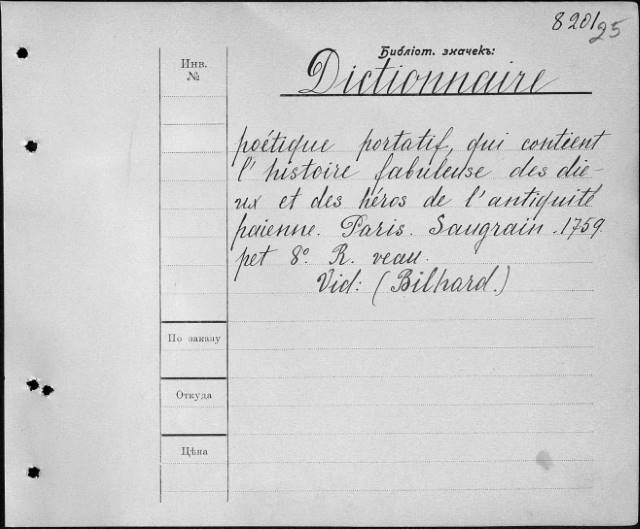 8201/25
Библіот. значекъ:
Инв.
№
Dictionnaire
poétique portatif, qui contient
l'histoire fabuleuse des die-
ux et des héros de l'antiquité
païenne. Paris. Saugrain. 1759.
pet 8° R. veau.
Vid: (Bilhard.)
По заказу
Откуда
Цѣна